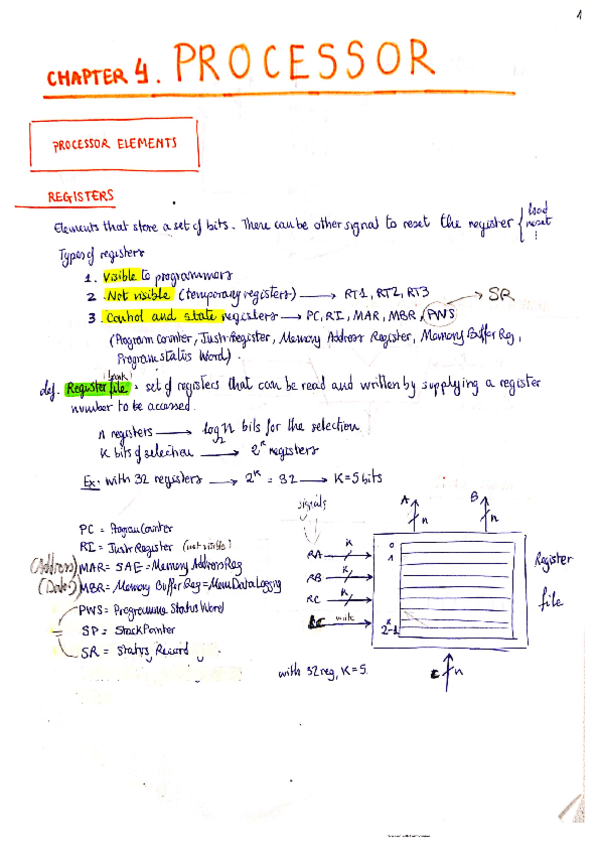 1
CHAPTER 4. PROCESSOR
PROCESSOR ELEMENTS
REGISTERS
Elements that store a set of bits. There can be other signal to reset the register { load
reset
⋮
Types of registers
1. Visible to programmers
2. Not visible (temporary registers) → RT1, RT2, RT3
3. Control and state registers → PC, RI, MAR, MBR, PWS → SR
(Program Counter, Instr Register, Memory Address Register, Memory Buffer Reg,
Program Status Word).
(bank)
def. Register file = set of registers that can be read and written by supplying a register
number to be accessed.
n registers → log₂n bits for the selection
K bits of selection → 2^K registers
Ex: with 32 registers → 2^K = 32 → K=5 bits
PC = Program Counter
RI = Instr Register (not visible)
(Address) MAR = SAE = Memory Address Reg
(Data) MBR = Memory Buffer Reg = Mem Data Logging
PWS = Programme Status Word
SP = Stack Pointer
= SR = Status Record
signals
A n
B n
RA K
RB K
RC K
write
0
1
2^K-1
Register
file
n
with 32 reg, K=5.